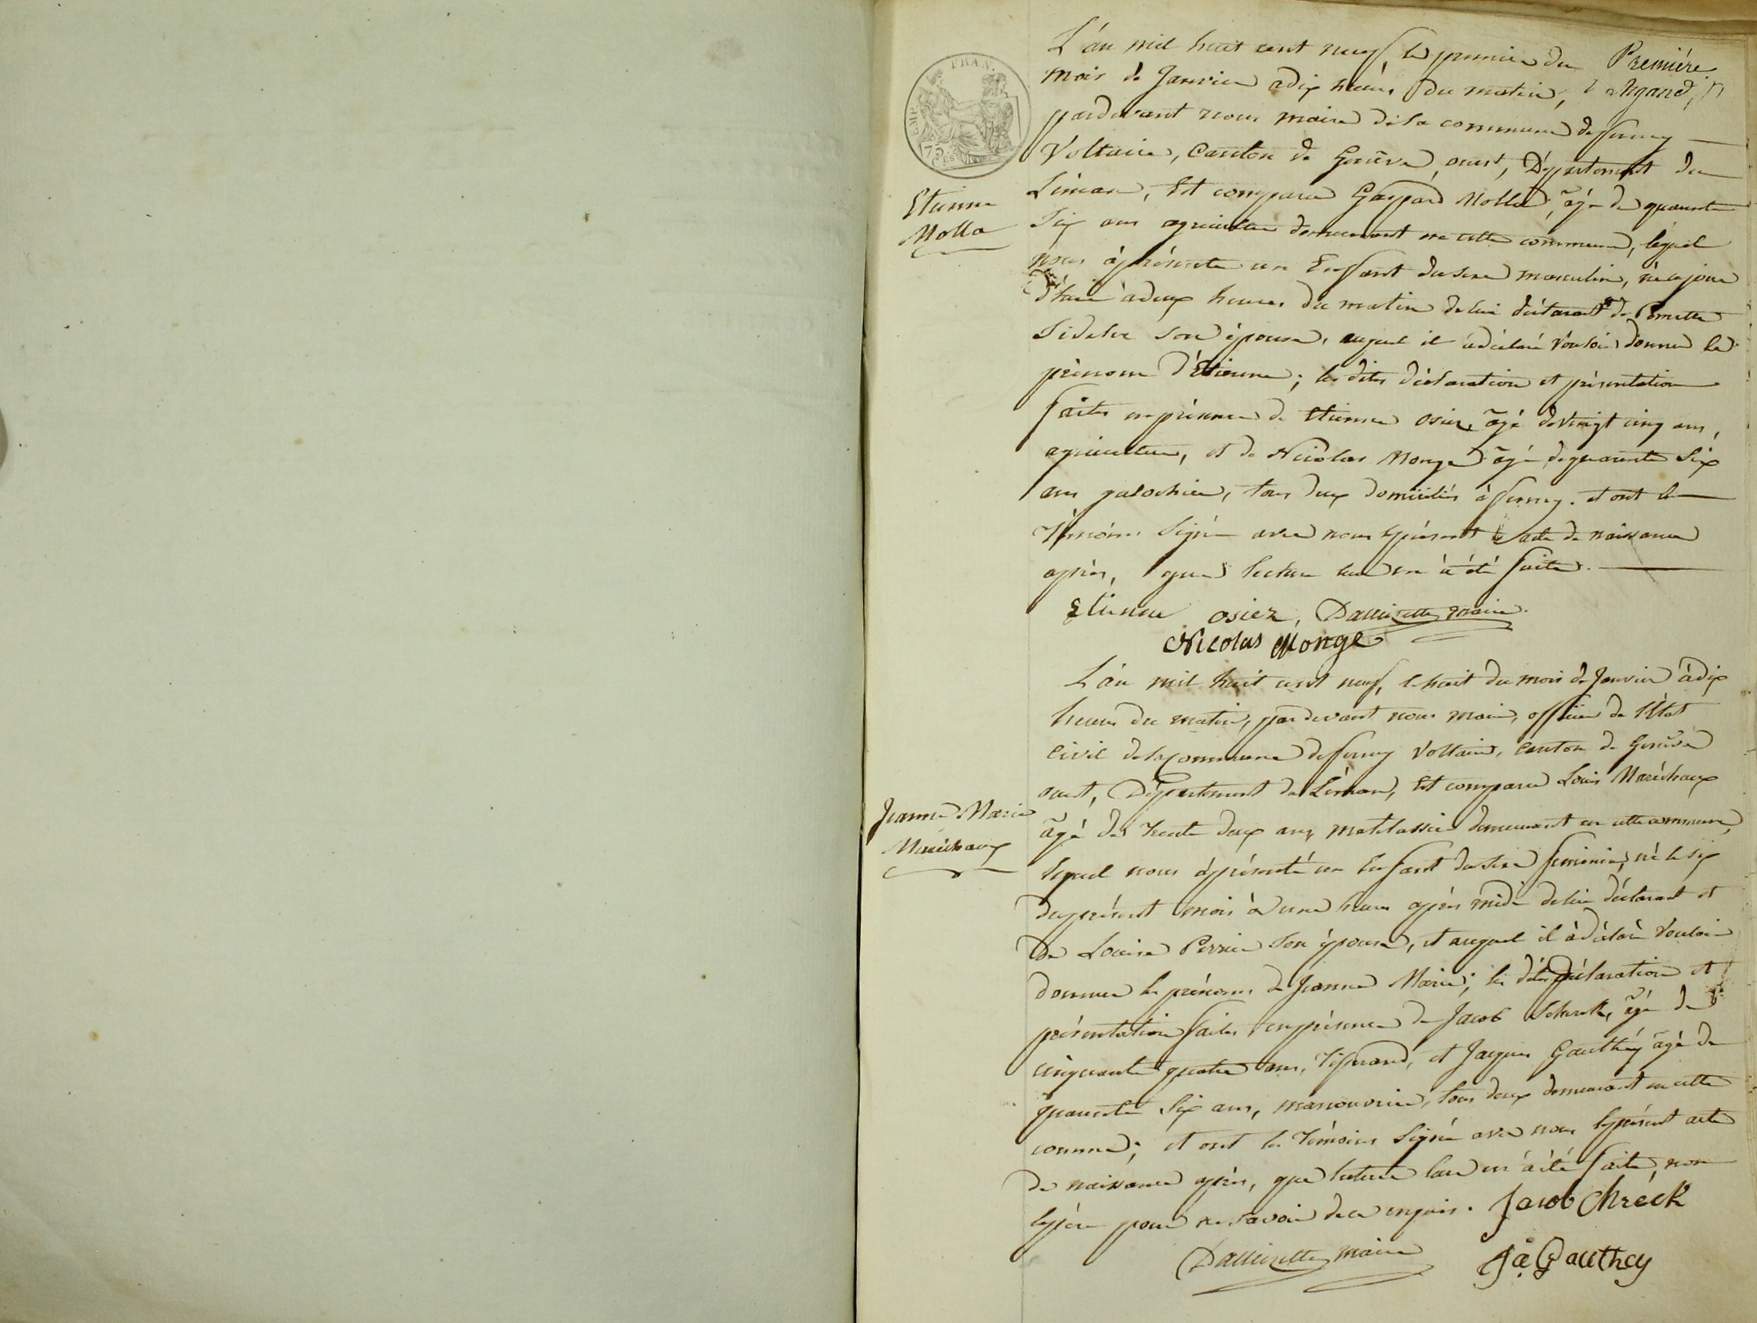 L'an mil huit cent neuf, le premier du Premiére
mois de Janvier à dix heures du matin,
pardevant nous maire de la commune de ferney
Voltaire, Canton de Genêve ouest, Département du
Léman, Est comparu Gaspard Molla, âgé de quarante
Six ans agriculteur demeurant en cette commune, lequel
nous à présenté un Enfant du sexe masculin, né ce jour
d'hui à deux heures du matin de lui déclarant et de Pernette
son épouse, auquel il à déclaré vouloir donner le
prénom d'Etienne; les dites déclaration et présentation
faites en présence de Etienne osiez, âgé de vingt cinq ans,
agriculteur, et de Nicolas Monge âgé de quarante Six
ans galochier, tous deux domiciliés à ferney. et ont les
témoins Signé avec nous le présent acte de naissance
après, que lecture leur en à été faite.
Etienne osiez, maire
Nicolas Monge
Etienne
Molla
L'an mil huit cent neuf, le huit du mois de Janvier à dix
heures du matin, pardevant nous maire, officier de l'Etat
civil de la Commune de ferney Voltaire, canton de Genêve
ouest, Département du Léman, Est comparu Louis Maréchaux
âgé de trente deux ans, matelassier demeurant en cette commune,
lequel nous à présenté un Enfant du sexe feminin, né le six
du présent mois à une heure après midi de lui déclarant et
de Louise Perrier son épouse, et auquel il à déclaré vouloir
donner les prénoms de Jeanne Marie; les dites déclaration et
présentation faites en présence de Jacob Schreck, âgé de
cinquante quatre ans, Tisserand, et Jaques Gauthey âgé de
quarante Six ans, manouvrier, tous deux demeurant en cette
comune; et ont les témoins Signé avec nous le présent acte
de naissance après, que lecture leur en à été faite, non
le père pour ne savoir de ce enquis. Jacob Chréck
maire Ja Gauthey
Jeanne Marie
Maréchaux